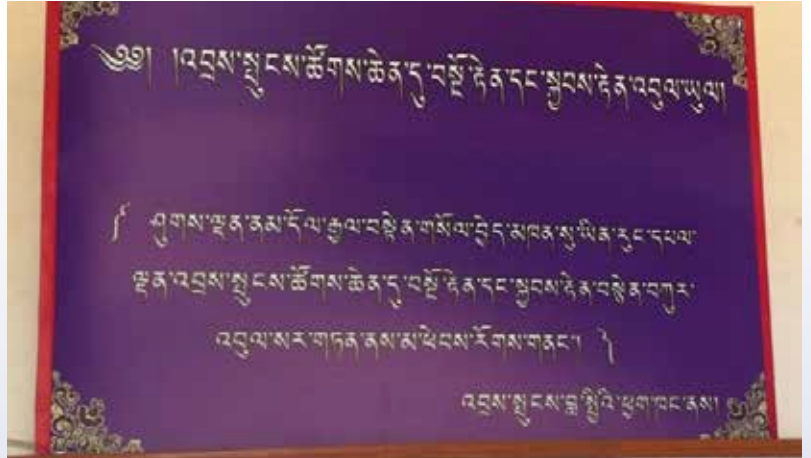 ༄༅། །འབྲས་སྤུངས་ཚོགས་ཆེན་དུ་བསྔོ་རྟེན་དང་སྐྱབས་རྟེན་འབུལ་ཡུལ།
༼ ཤུགས་ལྡན་ནམ་དོལ་རྒྱལ་བསྟེན་གསོལ་བྱེད་མཁན་སུ་ཡིན་རུང་དཔལ་
ལྡན་འབྲས་སྤུངས་ཚོགས་ཆེན་དུ་བསྔོ་རྟེན་དང་སྐྱབས་རྟེན་བསྙེན་བཀུར་
འབུལ་སར་གཏན་ནས་མ་ཕེབས་རོགས་གནང་། ༽
འབྲས་སྤུངས་བླ་སྤྱིའི་ཕྱག་ཁང་ནས།